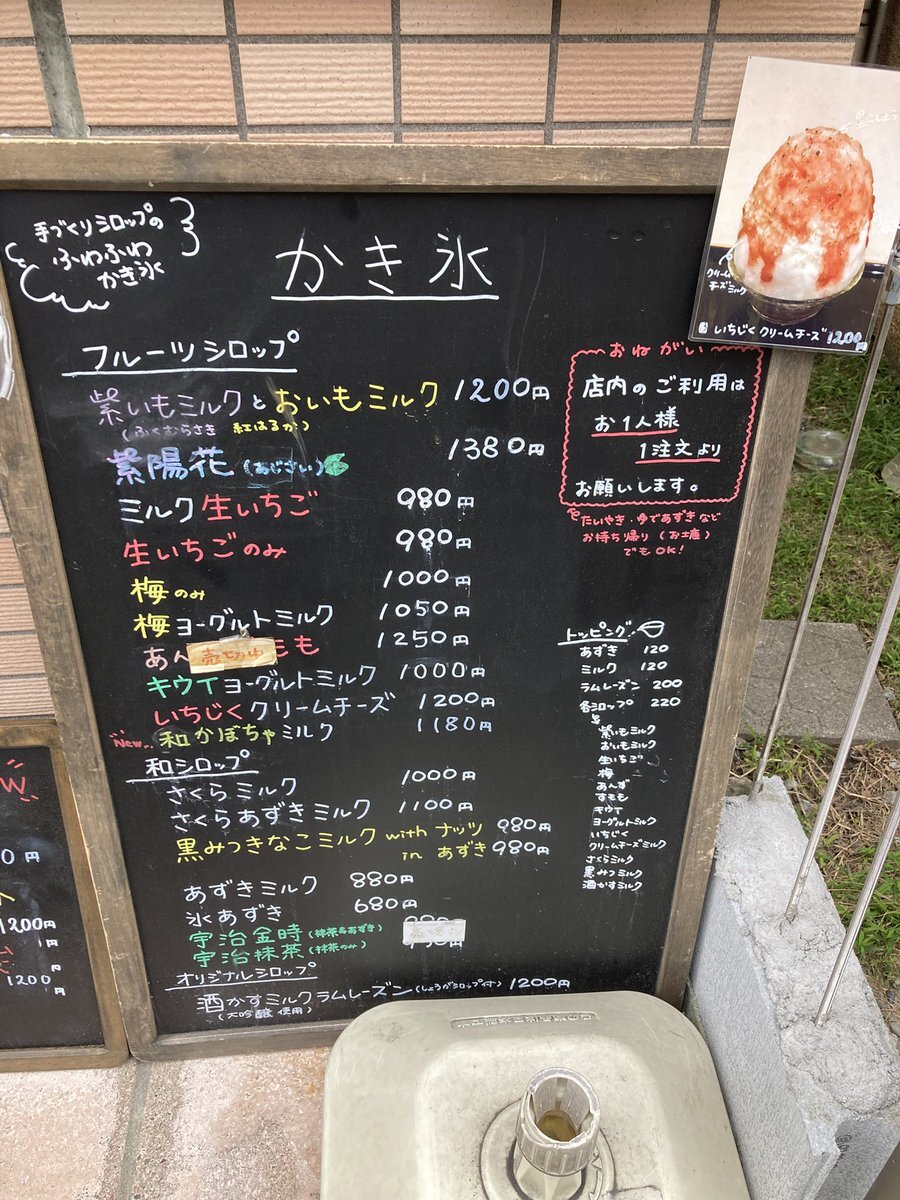 手づくりシロップの
ふわふわ
かき氷
かき氷
フルーツシロップ
紫いもミルクとおいもミルク 1200円
(ふくむらさき 紅はるか)
紫陽花(あじさい) 1380円
ミルク生いちご 980円
生いちごのみ 980円
梅のみ 1000円
梅ヨーグルトミルク 1050円
あん 売切中 もも 1250円
キウイヨーグルトミルク 1000円
いちじくクリームチーズ 1200円
New 和かぼちゃミルク 1180円
和シロップ
さくらミルク 1000円
さくらあずきミルク 1100円
黒みつきなこミルク with ナッツ 980円
in あずき 980円
あずきミルク 880円
氷あずき 680円
宇治金時(抹茶&あずき)
宇治抹茶(抹茶のみ)
オリジナルシロップ
酒かすミルクラムレーズン(しょうがシロップ付) 1200円
(大吟醸使用)
おねがい
店内のご利用は
お1人様
1注文より
お願いします。
たいやき・ゆであずきなど
お持ち帰り(お土産)
でもOK!
トッピング
あずき 120
ミルク 120
ラムレーズン 200
各シロップ 220
紫いもミルク
おいもミルク
生いちご
梅
あんず
すもも
キウイ
ヨーグルトミルク
いちじく
クリームチーズミルク
さくらミルク
黒みつミルク
酒かすミルク
クリーム
チーズミルク
いちじくクリームチーズ 1200
W
0円
1200円
円
1200円